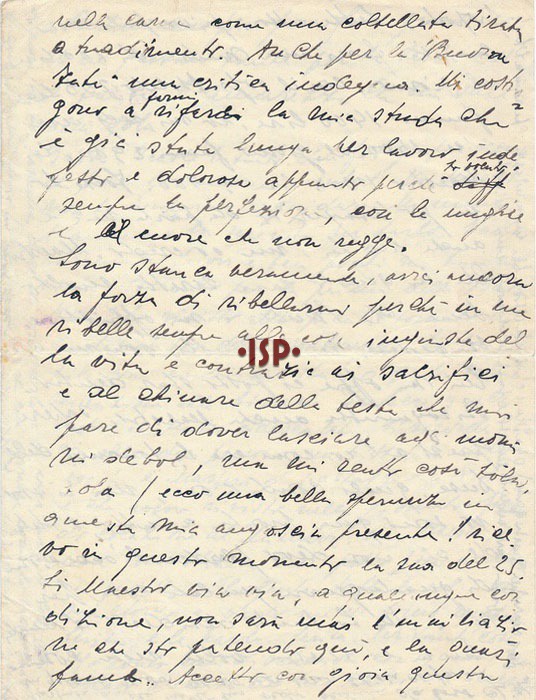 nella carne come una coltellata tirata
a tradimento. Anche per la "Buona
Fata" una critica indegna. Mi costrin=
gono a
farmi
rifarsi la mia strada che
è già stata lunga per lavoro inde
fesso e dolorosa appunto perchè
sempre la perfezione, con le unghie
e il cuore che non regge.
Sono stanca veramente, avrei ancora
la forza di ribellarmi perchè in me
ribelle sempre alle cose ingiuste del
la vita e ai salsifici
e al chinare della testa che mi
pare di dover lasciare agli uomi
ni deboli, ma mi sento così sola,
sola (ecco una bella speranza in
questa mia angoscia presente! rice
vo in questo momento la sua del 25.
Sì Maestro via via, a qualunque con
dizione, non sarà mai l'umiliazio
ne che sto patendo qui, e la quasi
fame. Accetto con gioia questa
·ISP·